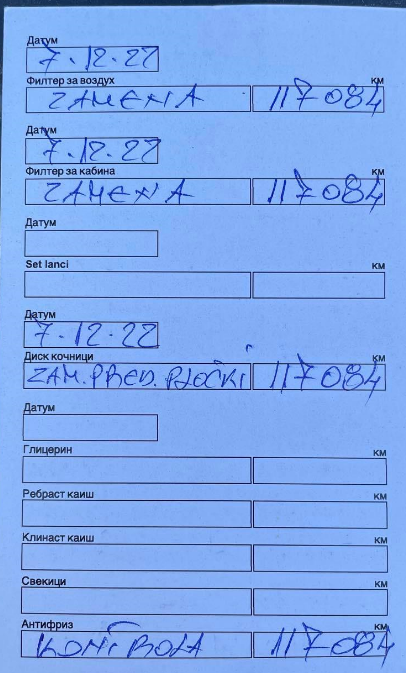 Датум
7.12.22
Филтер за воздух км
ZAMENA 117084
Датум
7.12.22
Филтер за кабина км
ZAMENA 117084
Датум
Set lanci км
Датум
7.12.22
Диск кочници км
ZAM. PRED. PLOČKI 117084
Датум
Глицерин км
Ребраст каиш км
Клинаст каиш км
Свеќици км
Антифриз км
KONTROLA 117084